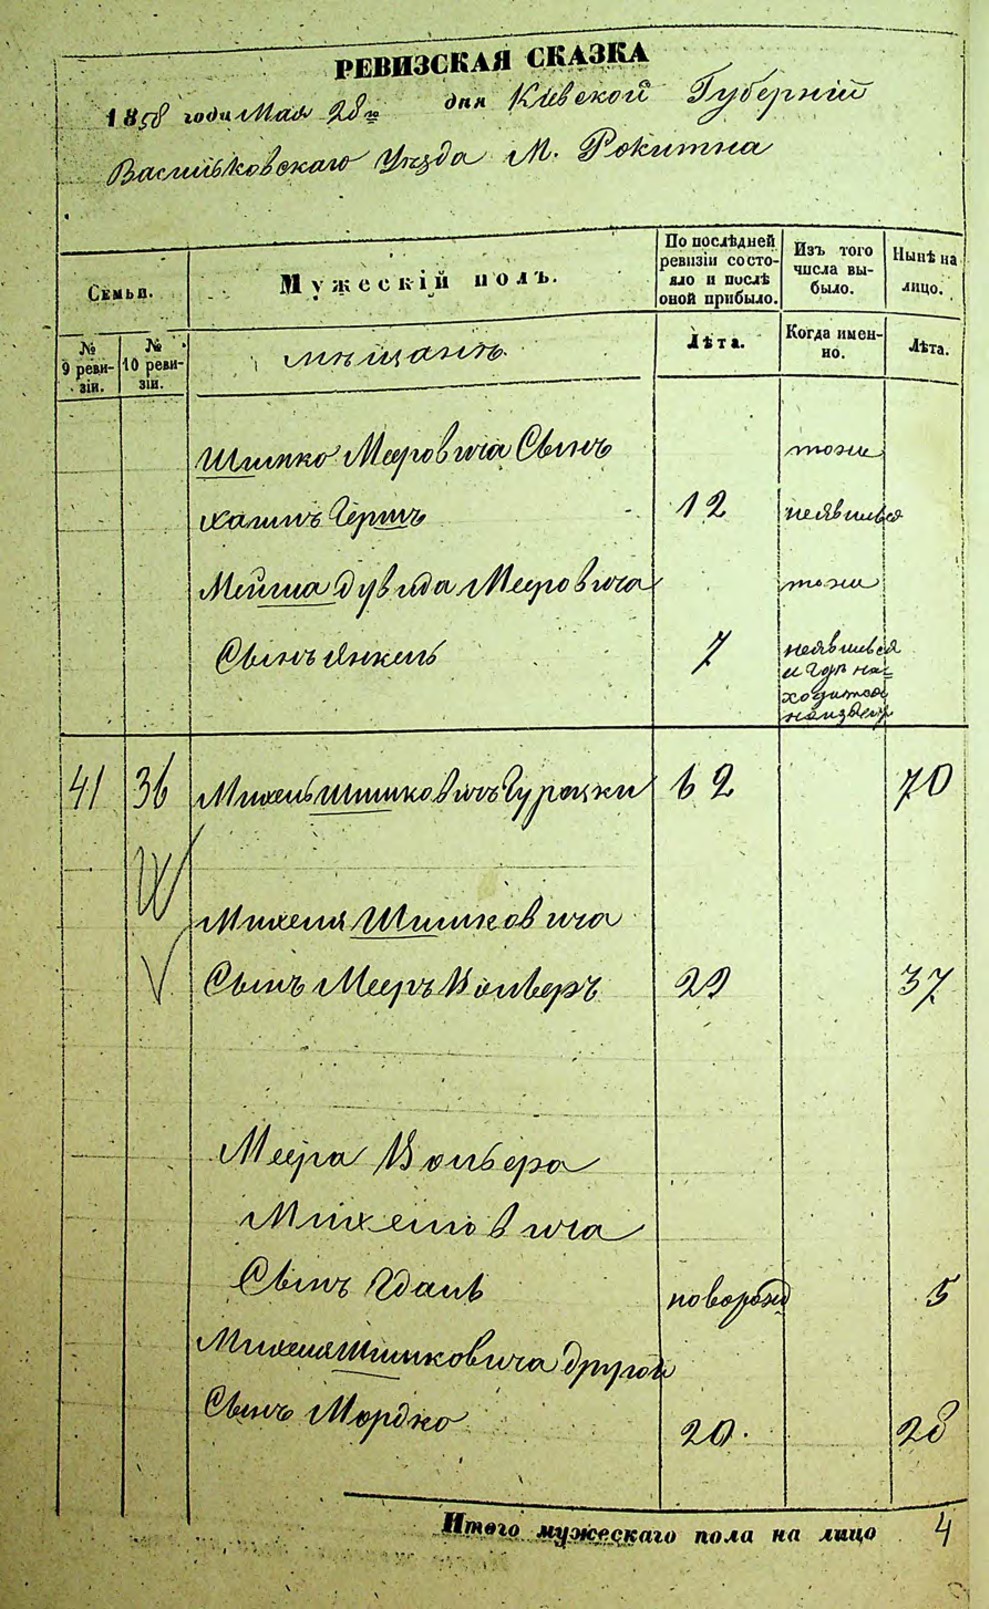 РЕВИЗСКАЯ СКАЗКА
1858 года Мая 28го дня Кіевской Губерніи
Васильковскаго Уезда М. Рокитна
Семьи.
Мужескій полъ.
По послѣдней ревизіи состояло и послѣ оной прибыло.
Изъ того числа выбыло.
Нынѣ на лицо.
№ 9 ревизіи.
№ 10 ревизіи.
мѣщане
Лѣта.
Когда именно.
Лѣта.
Шимко Мееровича Сынъ
тоже
Хаимъ Герш 12 неявился
Мейша Дувида Мееровича тоже
Сынъ Янкель 7 неявился
и где на-
ходится
41 36 Михель Шимковичъ 62 70
Михеля Шимковича
Сынъ Мееръ Вольверъ 29 37
Меера Вольвера
Михелиовича
Сынъ 5
Михеля Шимковича другой
Сынъ Мордко 20. 28
Итого мужескаго пола на лицо 4